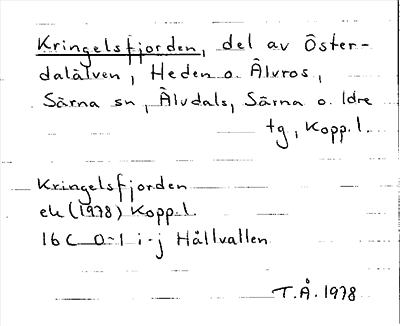 Kringelsfjorden, del av Öster-
dalälven, Heden o. Älvros,
Särna sn, Älvdals, Särna o. Idre
tg, Kopp.l.
Kringelsfjorden
ek (1978) Kopp.l.
16C 0-1 i-j Hållvallen
T.Å. 1978